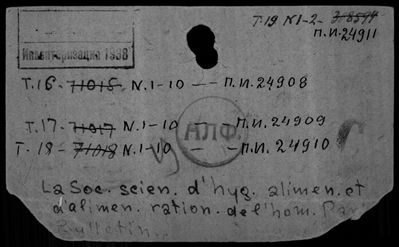 Т.19 N1-2- 38594
П.И.24911
Инвентаризация 1938
Т.16- 71015 N.1-10 — П.И.24908
Т.17- 71017 N.1-10 — П.И.24909
АЛФ.
Т.18- 71018 N.1-10 — П.И.24910
La Soc. scien. d'hyg. alimen. et
d'alimen. ration. de l'hom. Paris
Bulletin